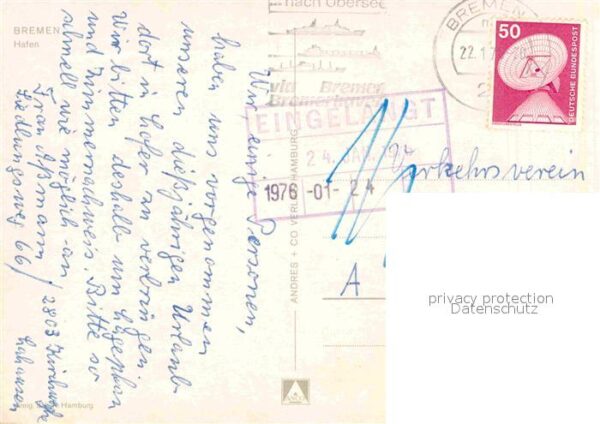 BREMEN
Hafen
Wir, einige Personen,
haben uns vorgenommen
unseren diesjährigen Urlaub
dort in Hofer an verbringen
Wir bitten deshalb um Lageplan
und Zimmernachweis. Bitte so
schnell wie möglich an
Frau Aßmann
Siedlungsweg 66 / 2803 Kirchweyhe
Lahausen
Hamburg
ANDRES + CO VERLAG HAMBURG
nach Übersee
via Bremen
Bremerhaven
BREMEN
22.1.7
2
50
DEUTSCHE BUNDESPOST
EINGELANGT
24. JAN. 19
1976 -01- 24
Verkehrsverein
A
privacy protection
Datenschutz